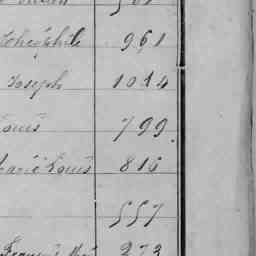 Théophile 961
Joseph 1014
Louis 799
Marie Louis 816
557
273